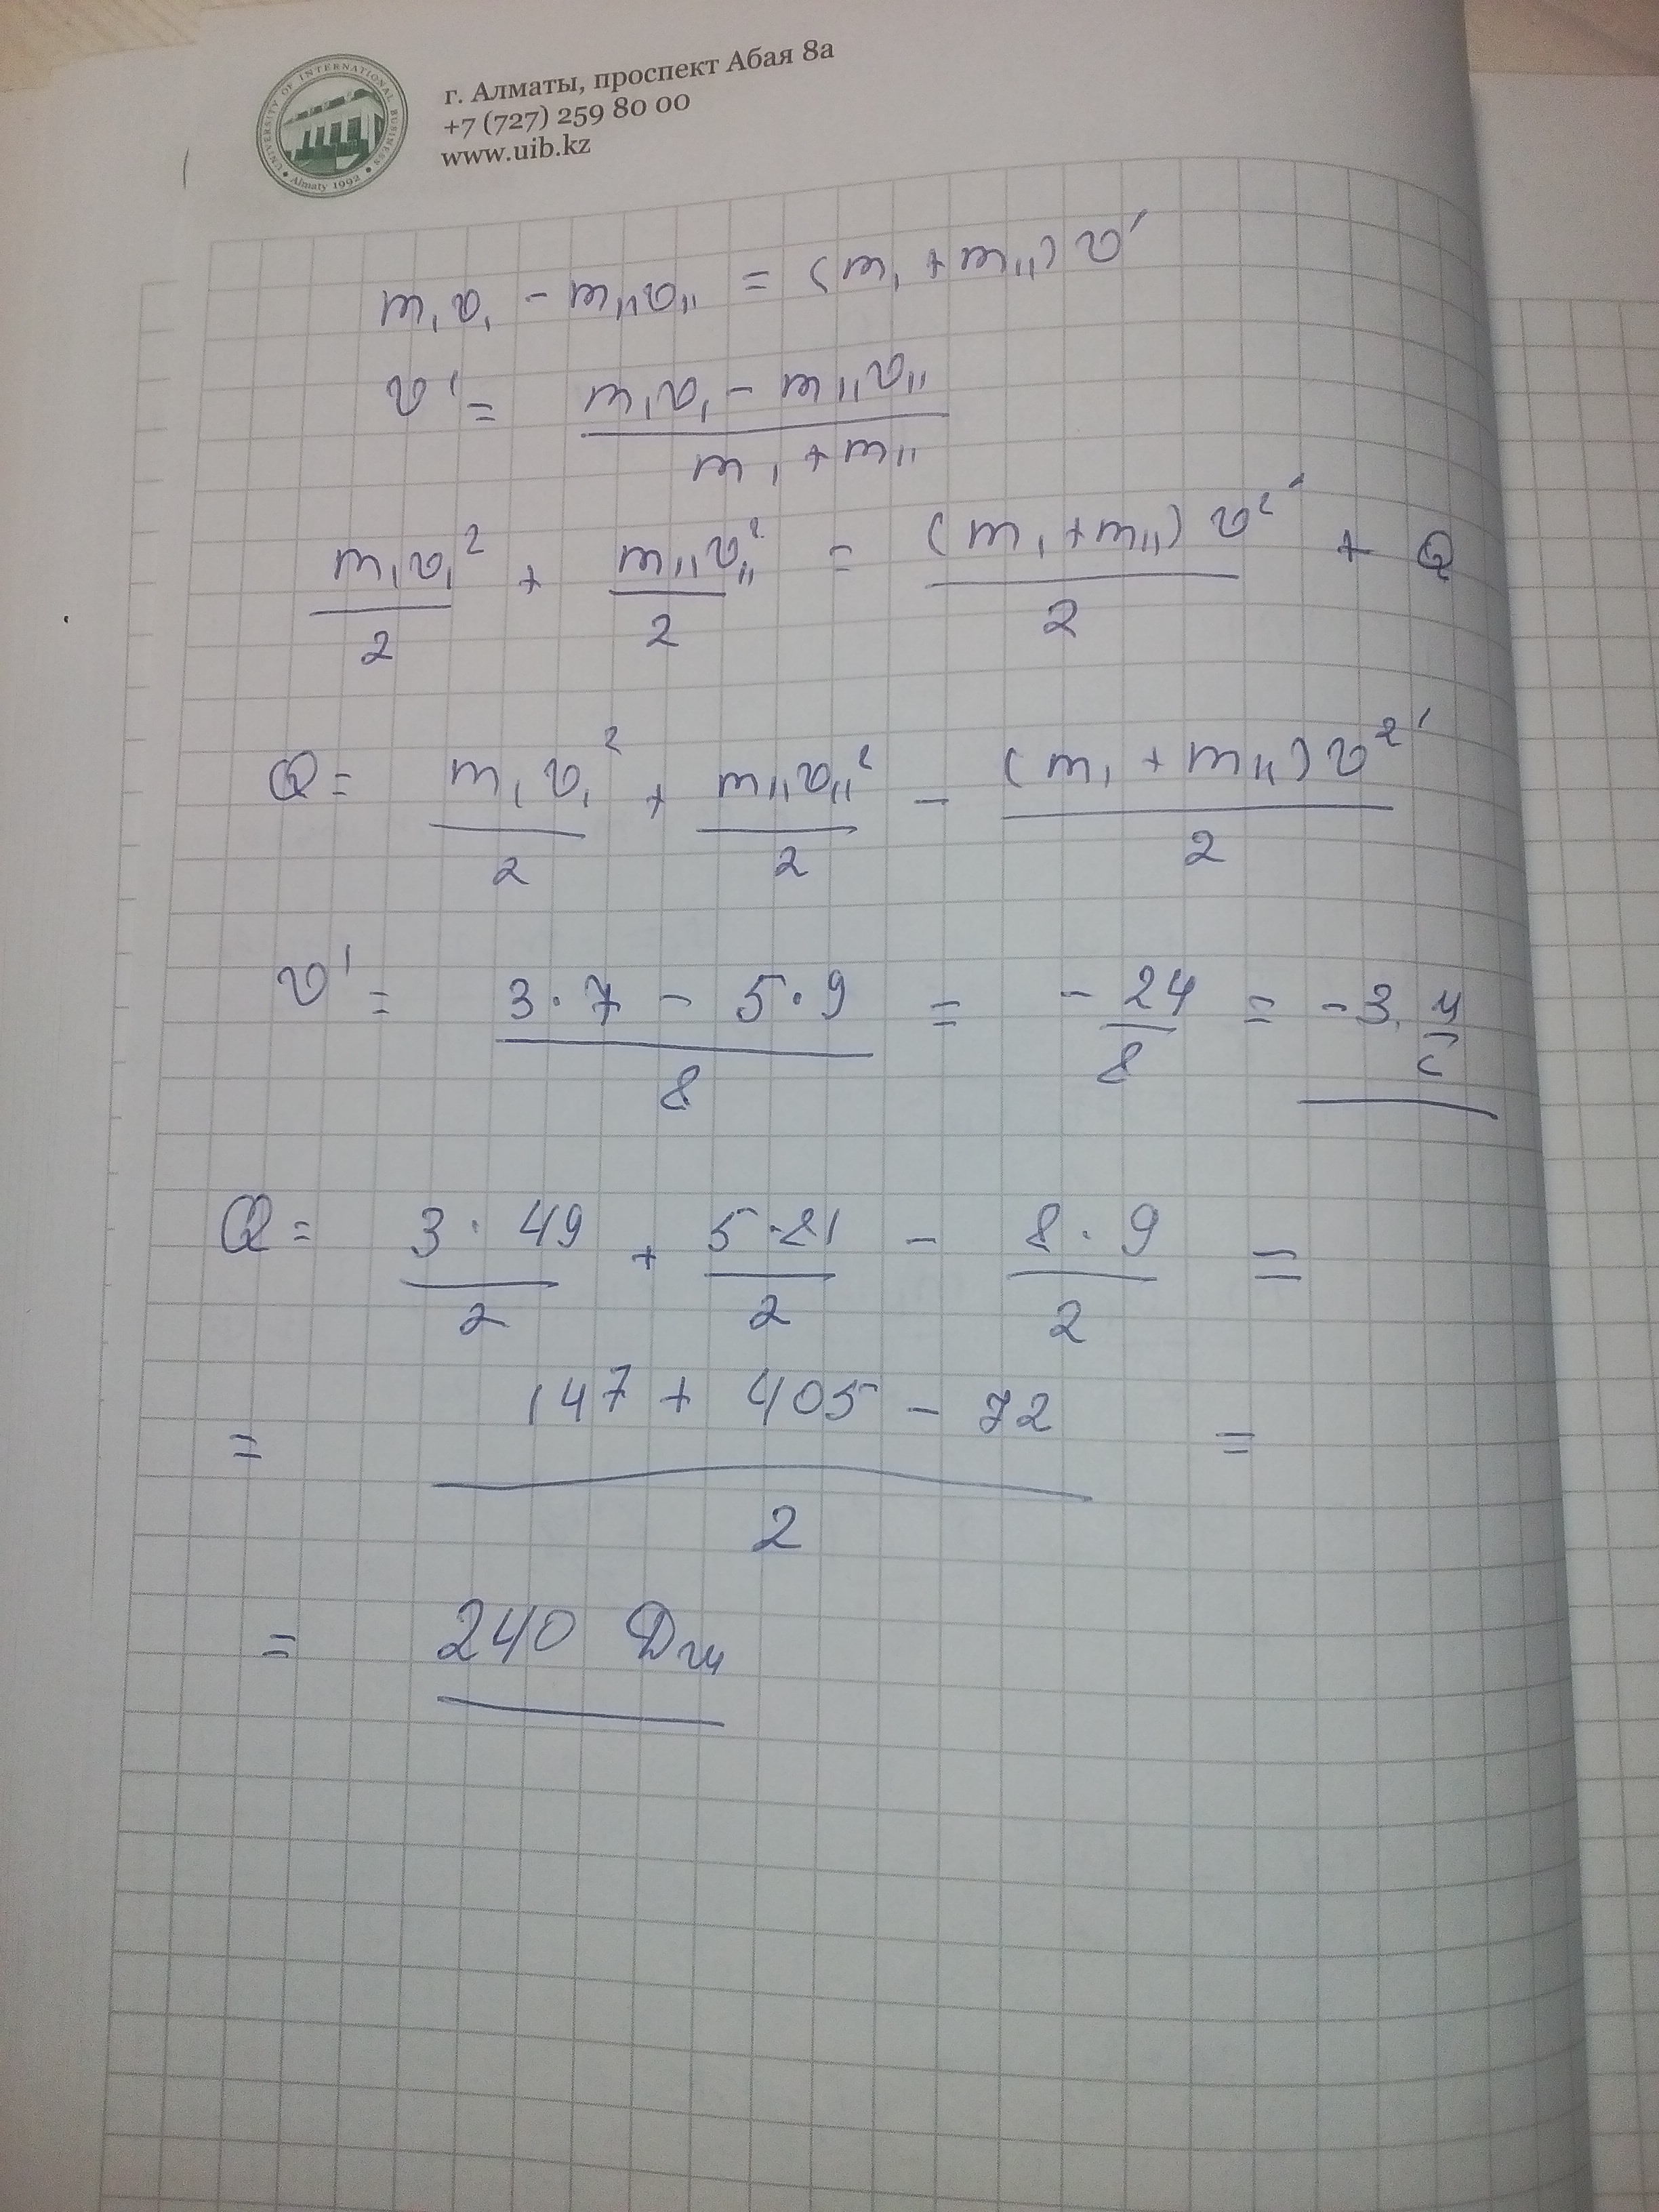 UNIVERSITY OF INTERNATIONAL BUSINESS
Almaty 1992
г. Алматы, проспект Абая 8а
+7 (727) 259 80 00
www.uib.kz
m₁v₁ - m₁₁v₁₁ = (m₁ + m₁₁) v'
v' = (m₁v₁ - m₁₁v₁₁) / (m₁ + m₁₁)
m₁v₁² / 2 + m₁₁v₁₁² / 2 = (m₁ + m₁₁) v²' / 2 + Q
Q = m₁v₁² / 2 + m₁₁v₁₁² / 2 - (m₁ + m₁₁) v²' / 2
v' = (3 · 7 - 5 · 9) / 8 = - 24 / 8 = - 3 м/с
Q = 3 · 49 / 2 + 5 · 81 / 2 - 8 · 9 / 2 =
= (147 + 405 - 72) / 2 =
= 240 Дж